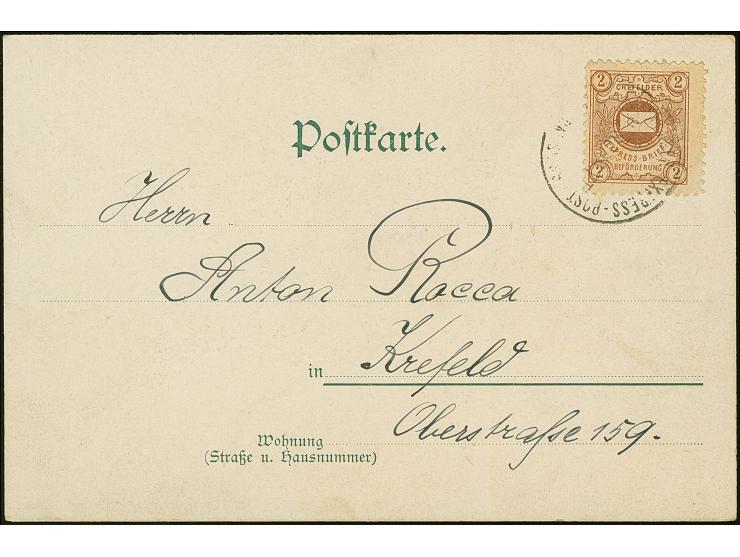 2 2
CREFELDER
EXPRESS-BRIEF
BEFÖRDERUNG
2 2
EXPRESS-POST
Postkarte.
Herrn
Anton Rocca
in Krefeld
Oberstraße 159.
Wohnung
(Straße u. Hausnummer)